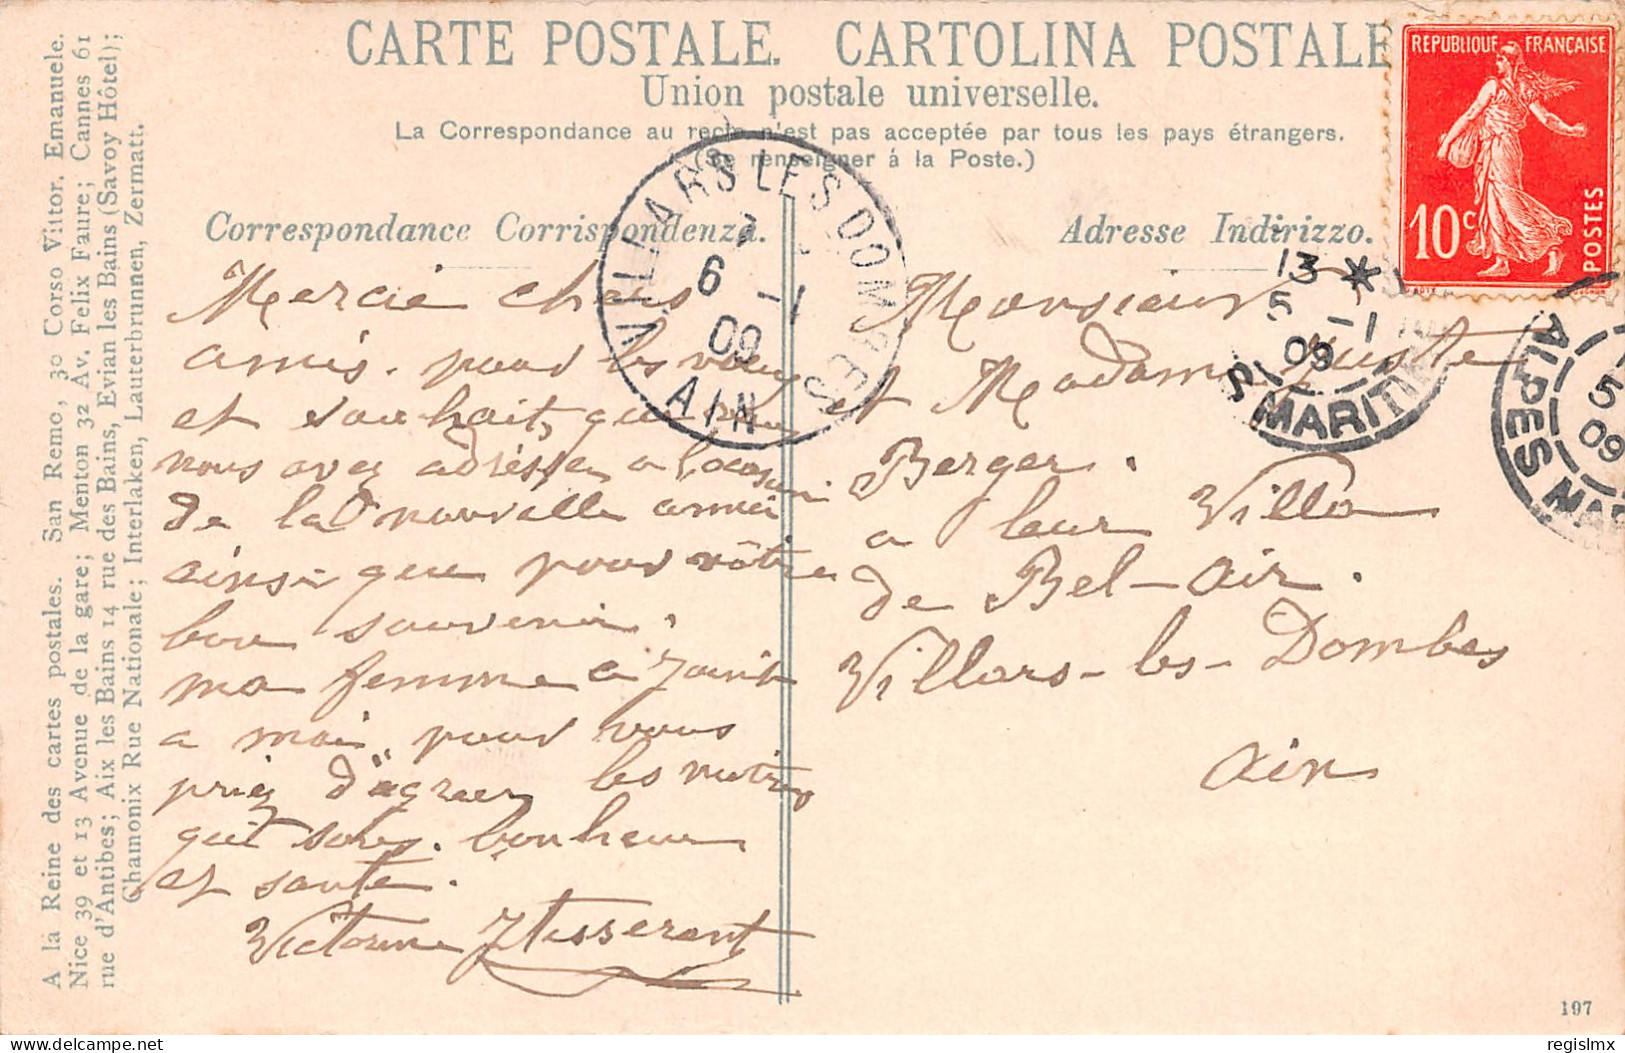 CARTE POSTALE. CARTOLINA POSTALE
Union postale universelle.
La Correspondance au recto n'est pas acceptée par tous les pays étrangers.
(Se renseigner á la Poste.)
Correspondance Corrispondenza.
Adresse Indirizzo.
REPUBLIQUE FRANÇAISE
10c
POSTES
VILLARS LES DOMBES
6 -1
09
AIN
13
5 -1
09
S MARITIMES
ALPES MAR
5
09
A la Reine des cartes postales. San Remo, 30 Corso Vittor. Emanuele.
Nice 39 et 13 Avenue de la gare; Menton 32 Av. Felix Faure; Cannes 61
rue d'Antibes; Aix les Bains 14 rue des Bains, Evian les Bains (Savoy Hôtel);
Chamonix Rue Nationale; Interlaken, Lauterbrunnen, Zermatt.
Mercie chers
amis. pour les vœux
et souhait, que
nous avez adresse a
de la nouvelle année
ainsi que pour vôtre
bon souvenir.
ma femme a Joint
a moi, pour vous
priez d'agreer les notres
bonheur
et sante.
Victorine Itisserant
Monsieur
et Madame Juste
Berger.
a leur Villa
de Bel-air.
Villars-les-Dombes
Ain
197
regislmx
delcampe.net